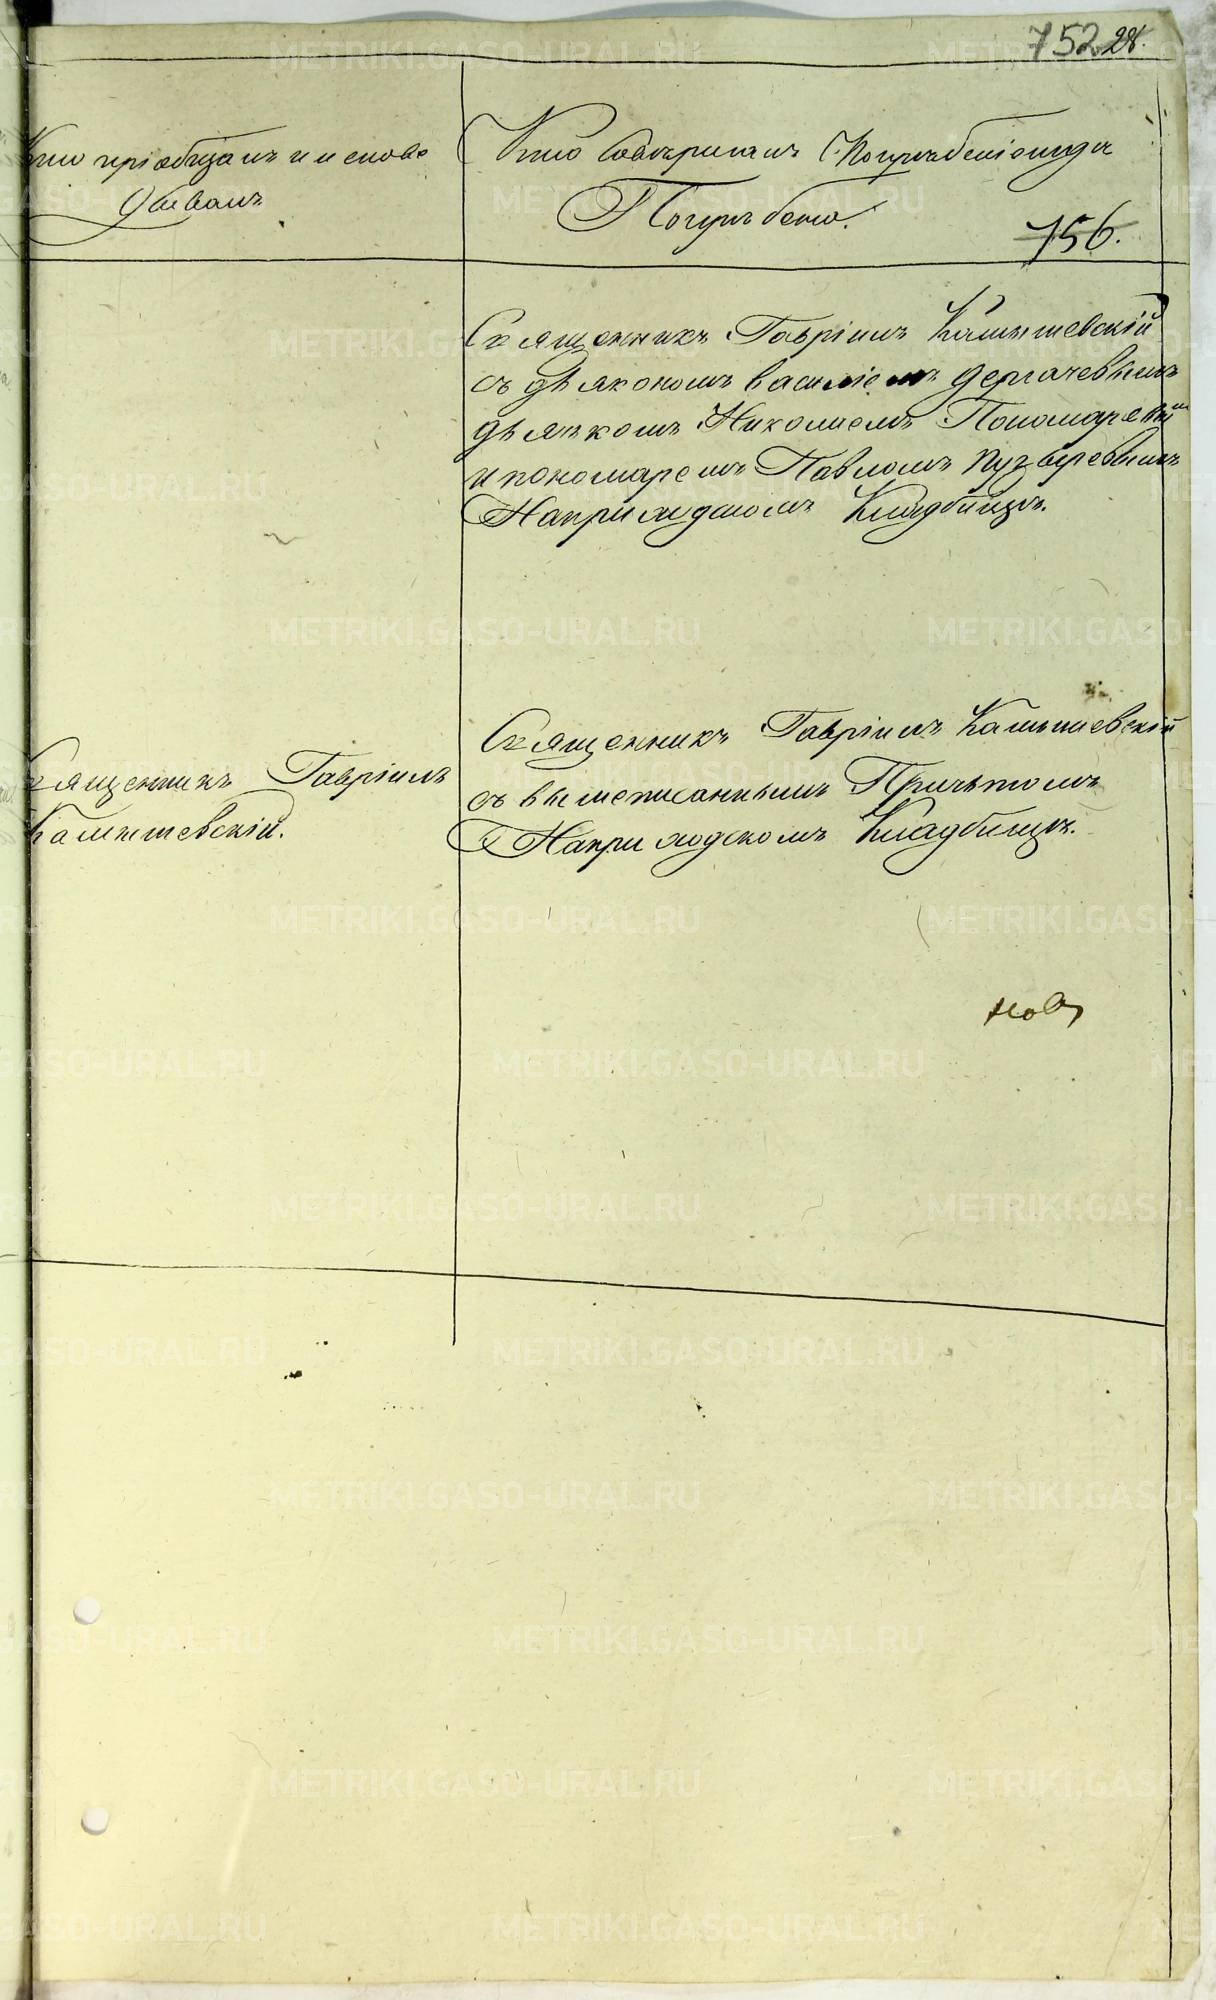 752 28.
Кто пріобщалъ и исповѣ
дывалъ
Кто совершалъ Погребеніе и гдѣ
Погребены.
756.
Священникъ Гавріилъ Камышевскій
съ діякономъ Василіемъ Дергачевымъ
дьячкомъ Николаемъ Пономаревымъ
и пономаремъ Павломъ Пузыревымъ
На приходскомъ Кладбищѣ.
Священникъ Гавріилъ
Камышевскій.
Священникъ Гавріилъ Камышевскій
съ вышеписаннымъ Причтомъ
На приходскомъ Кладбищѣ.
METRIKI.GASO-URAL.RU